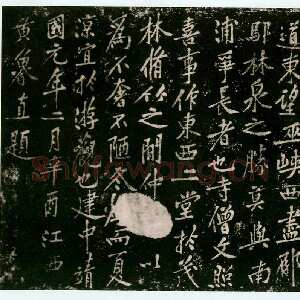 道東望巫峽西盡郁
鄢林泉之勝莫與南
浦爭長者也寺僧文照
喜事作東西二堂於茂
林脩竹之間仲
以
為不奢不陋冬
而夏
涼宜於游觀也建中靖
國元年二月辛酉江西
黃
直題